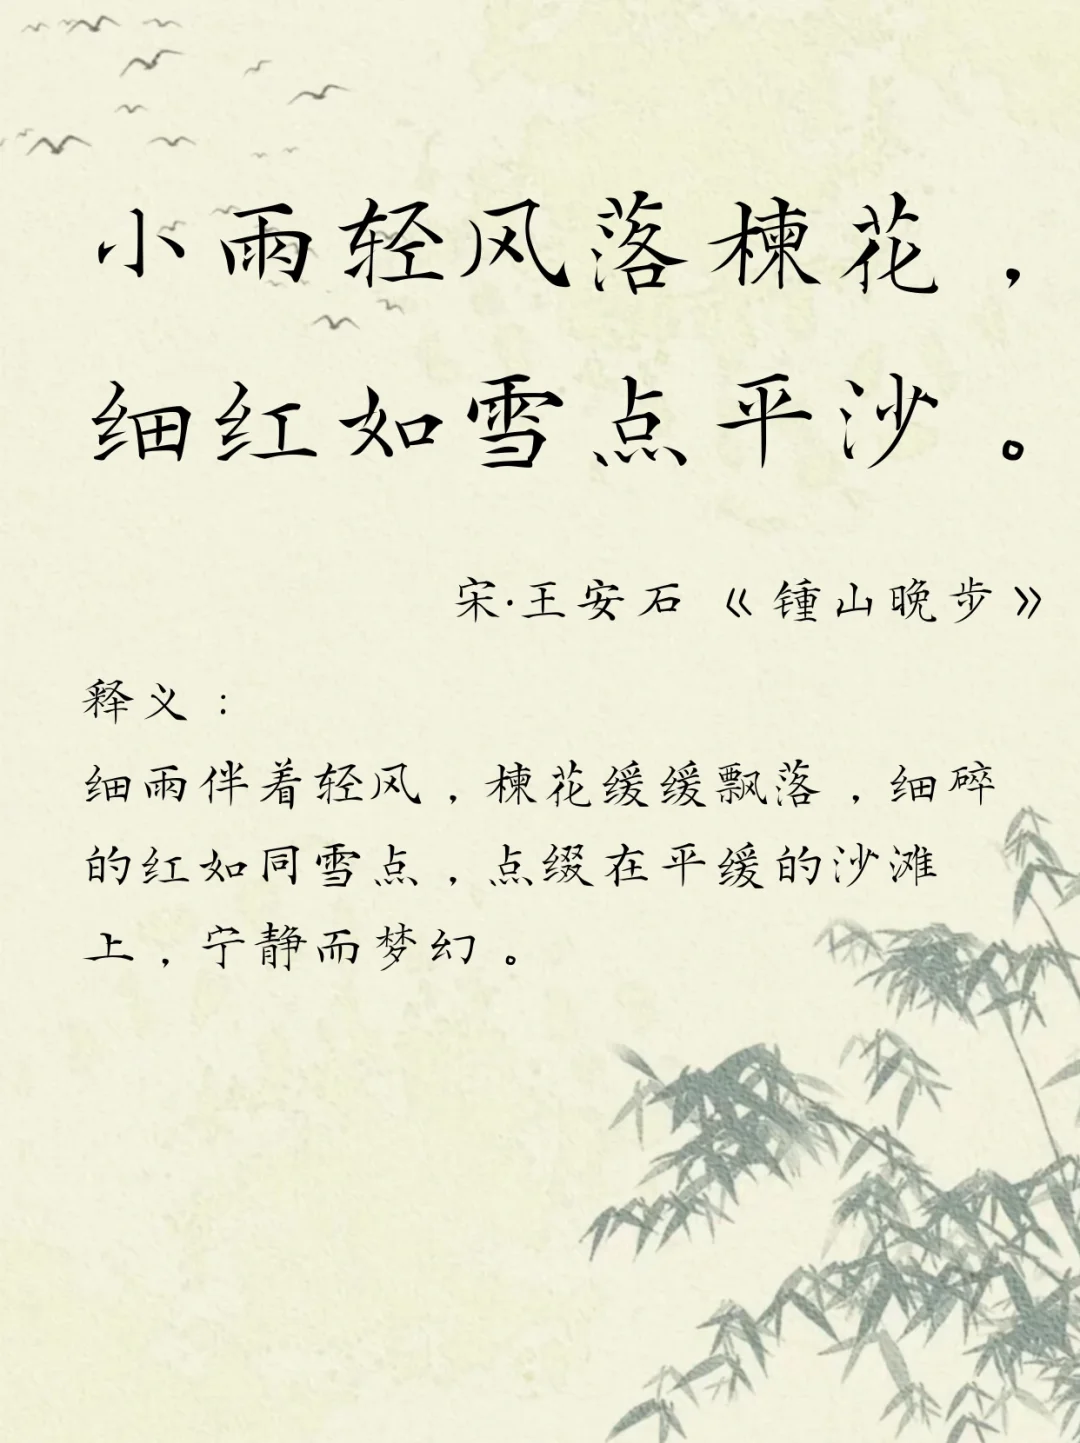 小雨轻风落楝花，
细红如雪点平沙。
宋·王安石《锺山晚步》
释义：
细雨伴着轻风，楝花缓缓飘落，细碎
的红如同雪点，点缀在平缓的沙滩
上，宁静而梦幻。